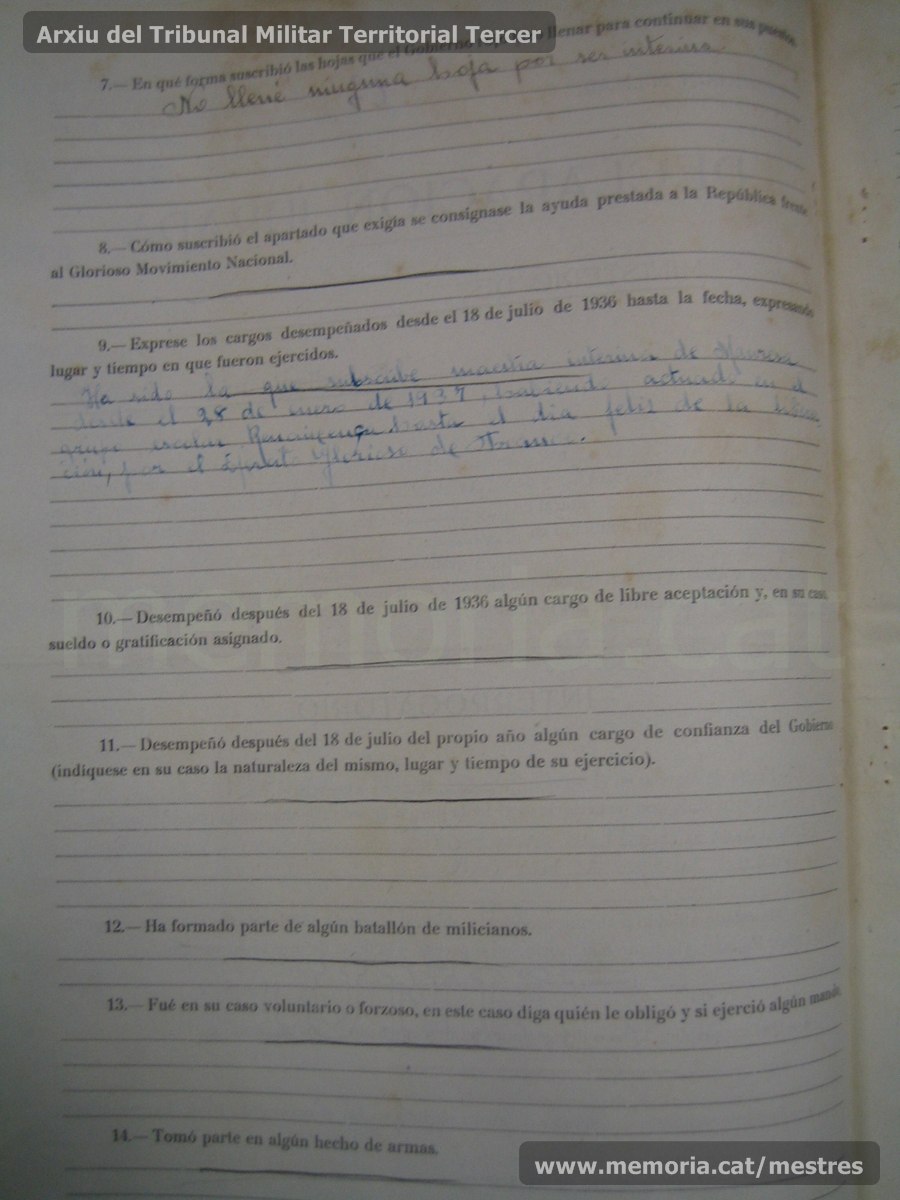 Arxiu del Tribunal Militar Territorial Tercer
7.— En qué forma suscribió las hojas que el Gobierno llenar para continuar en sus puestos
No llené ninguna hoja por ser interina
8.— Cómo suscribió el apartado que exigía se consignase la ayuda prestada a la República frente
al Glorioso Movimiento Nacional.
9.— Exprese los cargos desempeñados desde el 18 de julio de 1936 hasta la fecha, expresando
lugar y tiempo en que fueron ejercidos.
Ha sido la que subscribe maestra interina de Manresa
desde el 28 de enero de 1937, habiendo actuado en el
grupo escolar Renaixença hasta el dia feliz de la libera
ción, por el Ejército Glorioso de Franco.
10.— Desempeñó después del 18 de julio de 1936 algún cargo de libre aceptación y, en su caso,
sueldo o gratificación asignado.
11.— Desempeñó después del 18 de julio del propio año algún cargo de confianza del Gobierno
(indíquese en su caso la naturaleza del mismo, lugar y tiempo de su ejercicio).
12.— Ha formado parte de algún batallón de milicianos.
13.— Fué en su caso voluntario o forzoso, en este caso diga quién le obligó y si ejerció algún mando.
14.— Tomó parte en algún hecho de armas.
www.memoria.cat/mestres